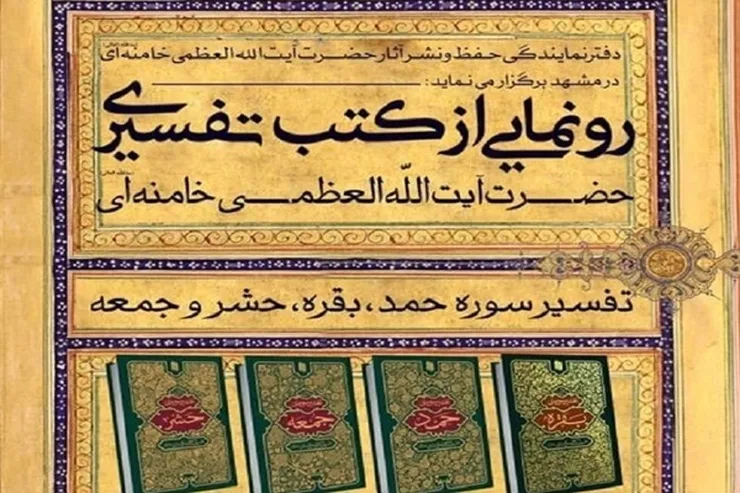 دفتر نمایندگی حفظ و نشر آثار حضرت آیت الله العظمی خامنه‌ای
در مشهد برگزار می نماید:
رونمایی از کتب تفسیری
حضرت آیت اللّه العظمی خامنه‌ای
تفسیر سوره حمد، بقره، حشر و جمعه
حشر
جمعه
حمد
بقره